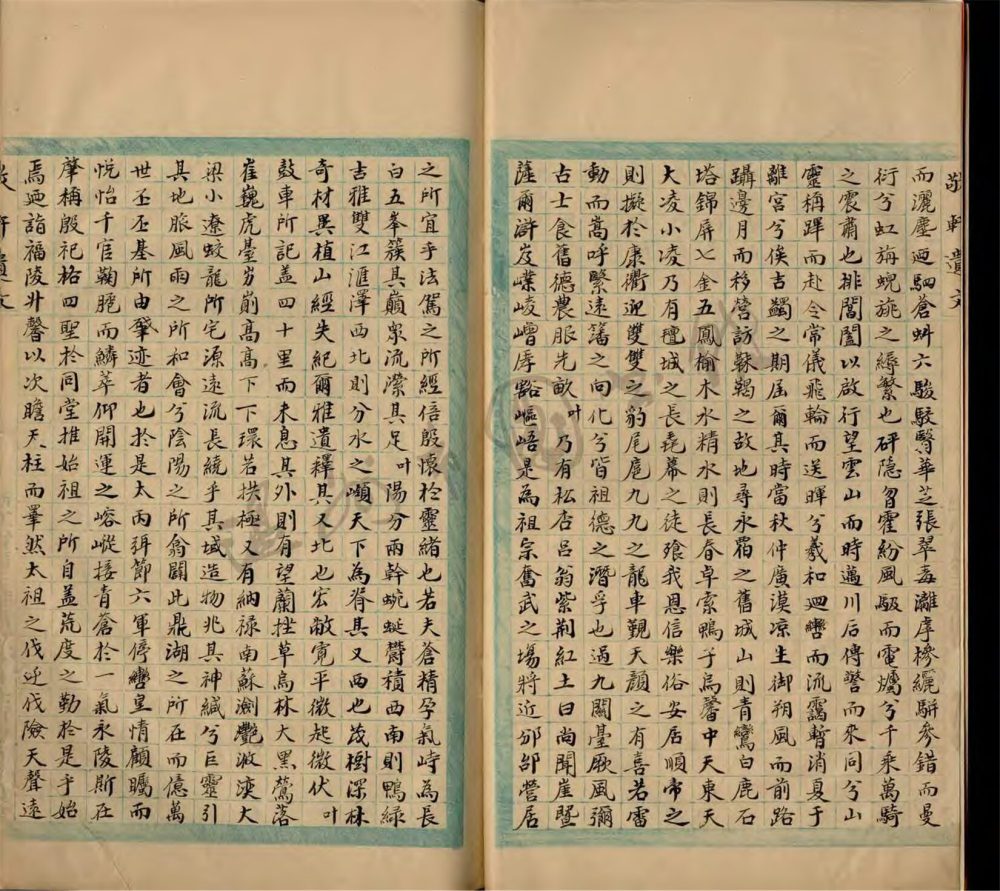 敬軒遺文
而灑塵迴駟蒼蚪六駿駁騢華芝張翠毒灕㡓㯥纚騈參錯而曼
衍兮虹旃蜺旄之繽繁也砰隱㫚霍紛風馺而電爥兮千乘萬騎
之震肅也排閶闔以啟行望雲山而時邁川后傳警而來同兮山
靈稱蹕而赴令常儀飛輪而送暉兮羲和迴轡而流靄暫消夏于
離宮兮俟吉蠲之期屆爾其時當秋仲廣漠凉生御朔風而前路
躡邊月而移營訪靺鞨之故地尋永霫之舊城山則青鸞白鹿石
塔錦屏七金五鳳榆木水精水則長春卓索鴨子烏馨中天東天
大凌小凌乃有氊城之長毳幕之徒飱我恩信樂俗安居順帝之
則擬於康衢迎雙雙之豹尾扈九九之龍車覲天顏之有喜若雷
動而嵩呼緊遠藩之向化兮皆祖德之潛孚也過九關臺厥風彌
古士食舊德農服先畝叶乃有松杏呂翁紫荆紅土曰尚聞崖暨
薩爾滸岌嶫崚嶒㡓豁嶇峿是為祖宗奮武之場將近邠邰營居
之所宜乎法駕之所經信殷懷於靈緒也若夫蒼精孕氣峙為長
白五峯簇其巔眾流濴其足叶陽分兩幹蜿蜒欝積西南則鴨綠
古雅雙江滙澤西北則分水之嶺天下為脊其又西也茂樹深林
奇材異植山經失紀爾雅遺釋其又北也宏敞寬平微起微伏叶
鼓車所記盖四十里而未息其外則有望蘭挫草烏林大黑鶯落
崔巍虎臺屴崱高高下下環若拱極又有納祿南蘇瀏灎波漣大
梁小遼蛟龍所宅源遠流長繞乎其域造物兆其神緘兮巨靈引
其地脈風雨之所和會兮陰陽之所翕闢此鼎湖之所在而億萬
世丕丕基所由肇迹者也於是太丙弭節六軍停轡皇情顧矚而
悅怡千官鞠䠆而鱗萃仰開運之嵱嵷接青蒼於一氣永陵斯在
肇稱殷祀祫四聖於同堂推始祖之所自盖荒度之勤於是乎始
焉迺詣福陵升馨以次瞻天柱而睪然太祖之伐迹伐險天聲遠
敬軒遺文